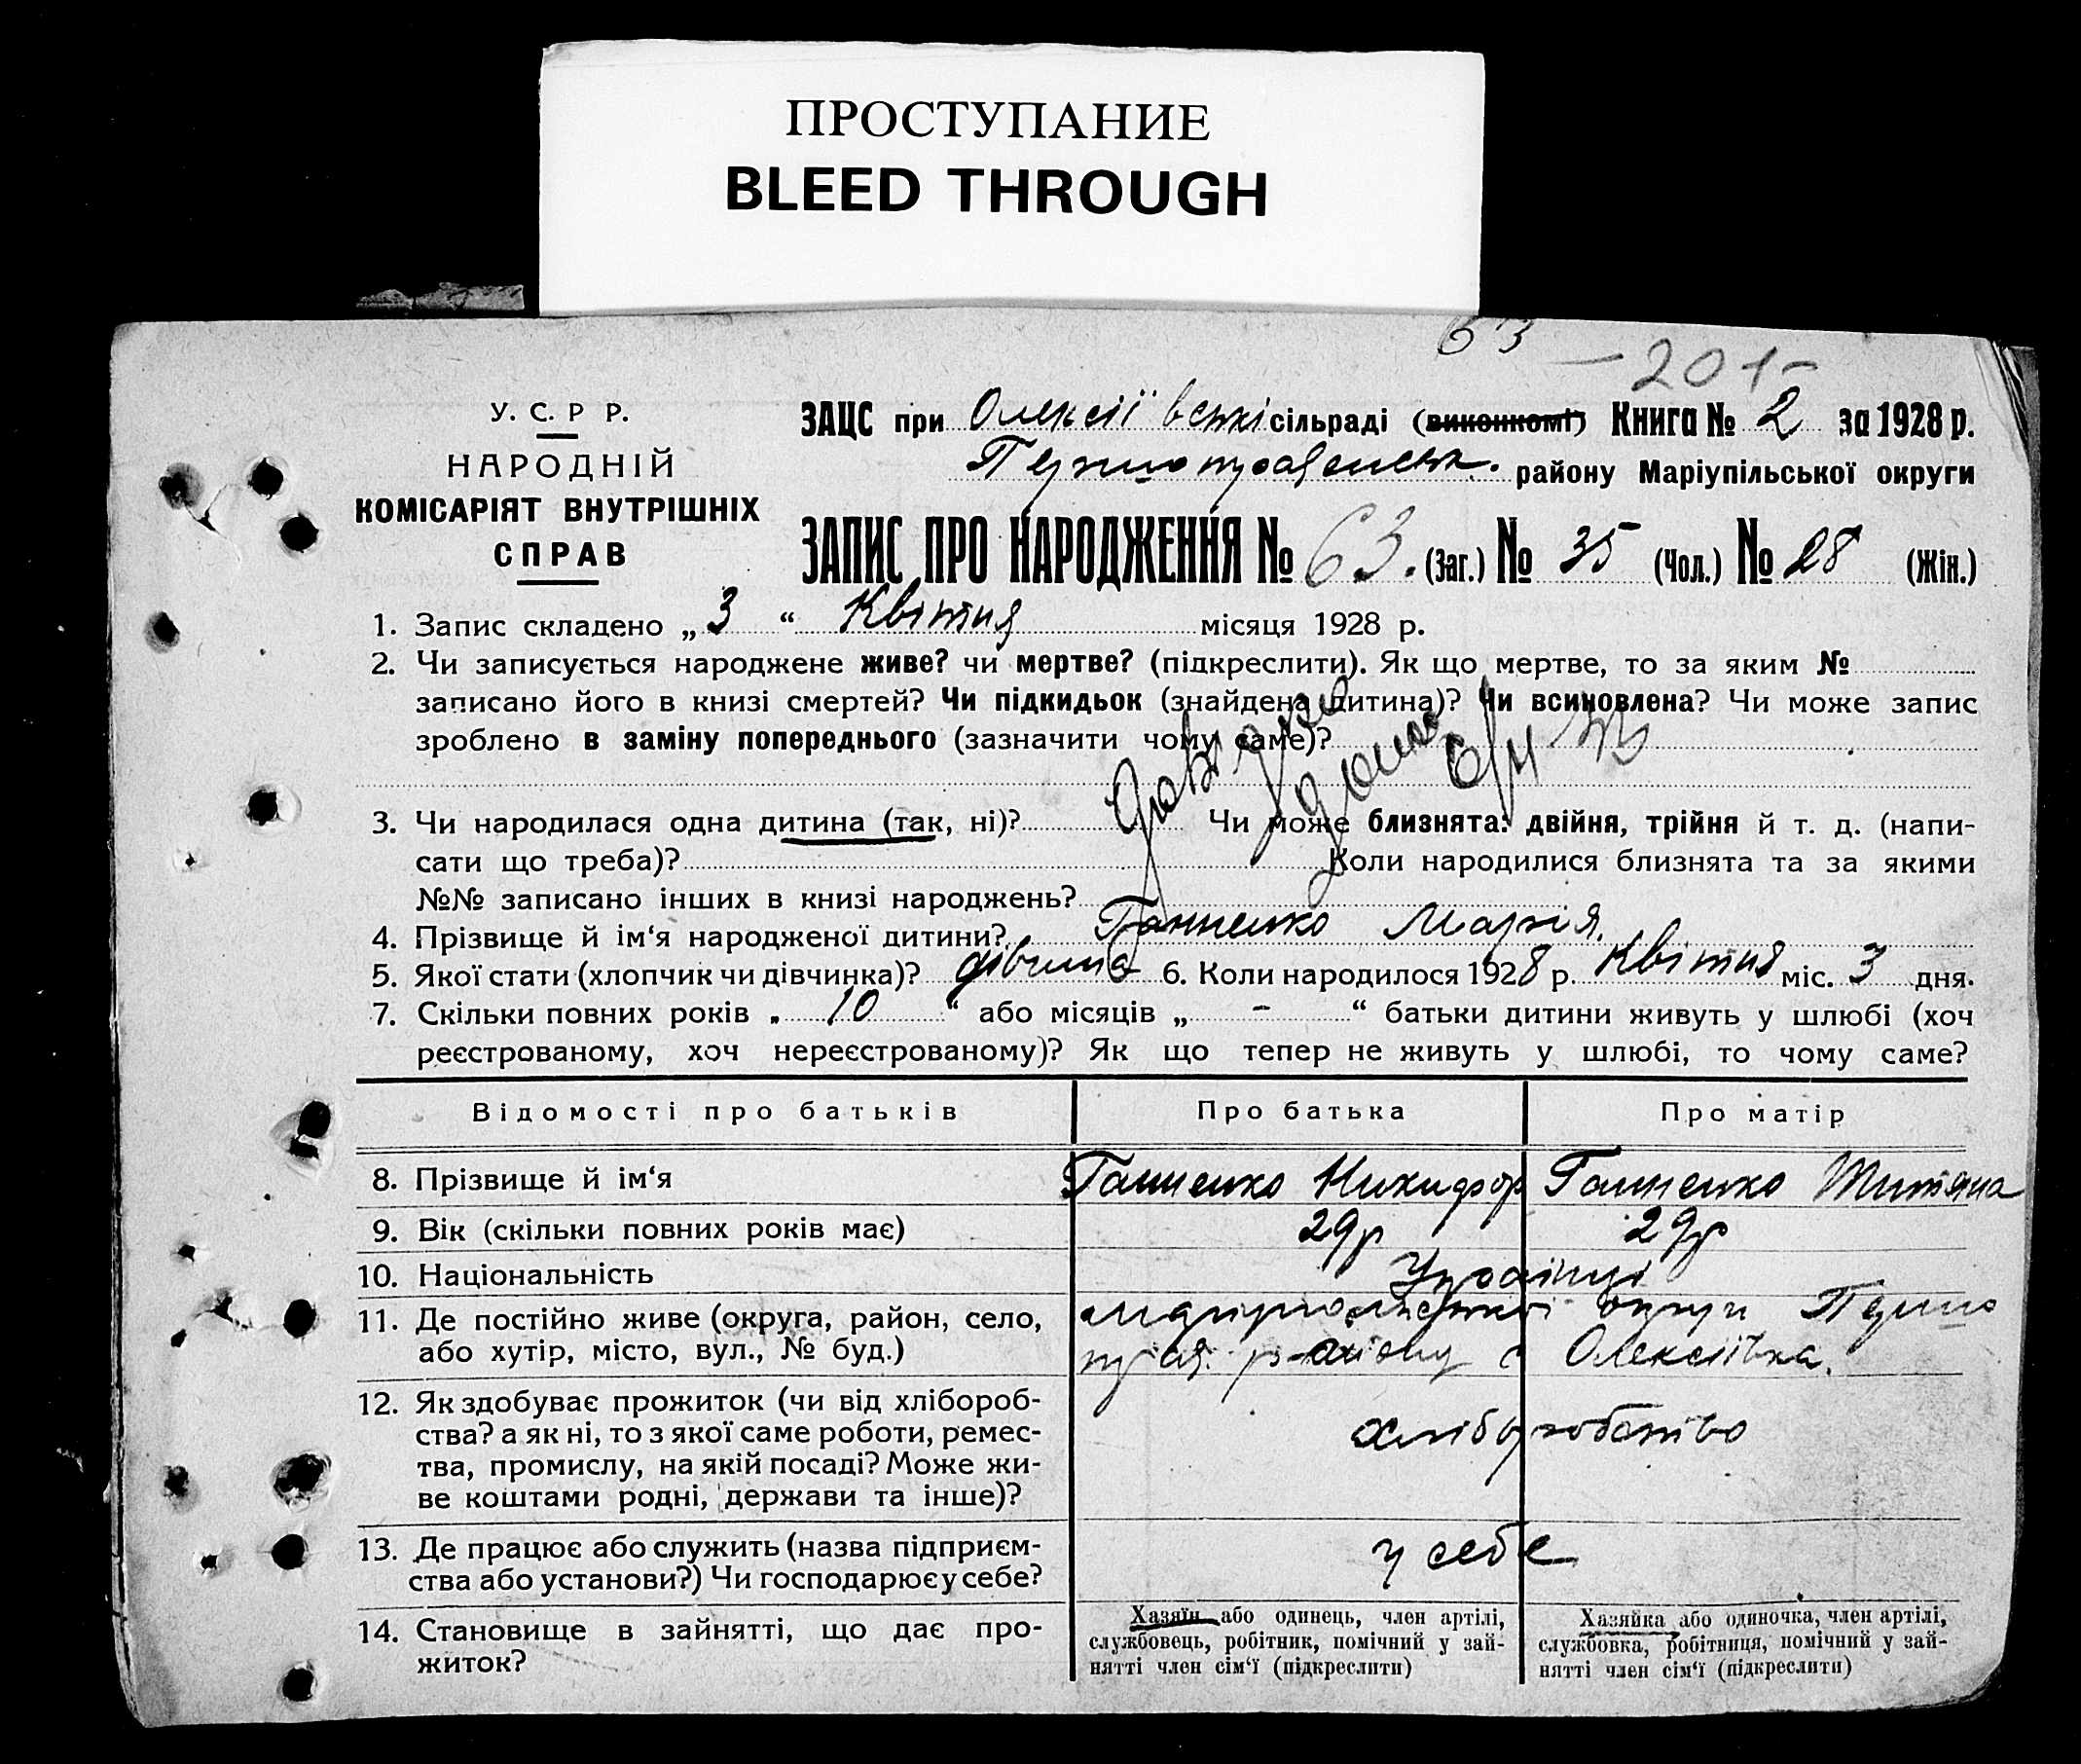 ПРОСТУПАНИЕ
BLEED THROUGH
63
201-
У. С. Р Р.
НАРОДНІЙ
КОМІСАРІЯТ ВНУТРІШНІХ
СПРАВ
ЗАЦС при Олексіївські сільраді (виконкомі) Книга № 2 за 1928 р.
району Маріупільської округи
ЗАПИС ПРО НАРОДЖЕННЯ № 63. (Заг.) № 35 (Чол.) № 28 (Жін.)
1. Запис складено „ 3 “ Квітня місяця 1928 р.
2. Чи записується народжене живе? чи мертве? (підкреслити). Як що мертве, то за яким №
записано його в книзі смертей? Чи підкидьок (знайдена дитина)? Чи всиновлена? Чи може запис
зроблено в заміну попереднього (зазначити чому саме)?
3. Чи народилася одна дитина (так, ні)? Чи може близнята: двійня, трійня й т. д. (напи-
сати що треба)? Коли народилися близнята та за якими
№№ записано інших в книзі народжень?
4. Прізвище й ім‘я народженої дитини? Ганненко Марія.
5. Якої стати (хлопчик чи дівчинка)? дівчина 6. Коли народилося 1928 р. Квітня міс. 3 дня.
7. Скільки повних років „ 10 “ або місяців „ - “ батьки дитини живуть у шлюбі (хоч
реєстрованому, хоч нереєстрованому)? Як що тепер не живуть у шлюбі, то чому саме?
Відомості про батьків Про батька Про матір
8. Прізвище й ім‘я Ганненко Никифор Ганненко Титяна
9. Вік (скільки повних років має) 29р 29р
10. Національність Українці
11. Де постійно живе (округа, район, село, округи Першо
або хутір, місто, вул., № буд.) прав. району с Олексіївка.
12. Як здобуває прожиток (чи від хлібороб-
ства? а як ні, то з якої саме роботи, ремес- хліборобство
тва, промислу, на якій посаді? Може жи-
ве коштами родні, держави та інше)?
13. Де працює або служить (назва підприєм- у себе
ства або установи?) Чи господарює у себе?
14. Становище в зайнятті, що дає про-
житок?
Хазяїн або одинець, член артілі,
службовець, робітник, помічний у зай-
нятті член сім‘ї (підкреслити)
Хазяйка або одиночка, член артілі,
службовка, робітниця, помічний у зай-
нятті член сім‘ї (підкреслити)